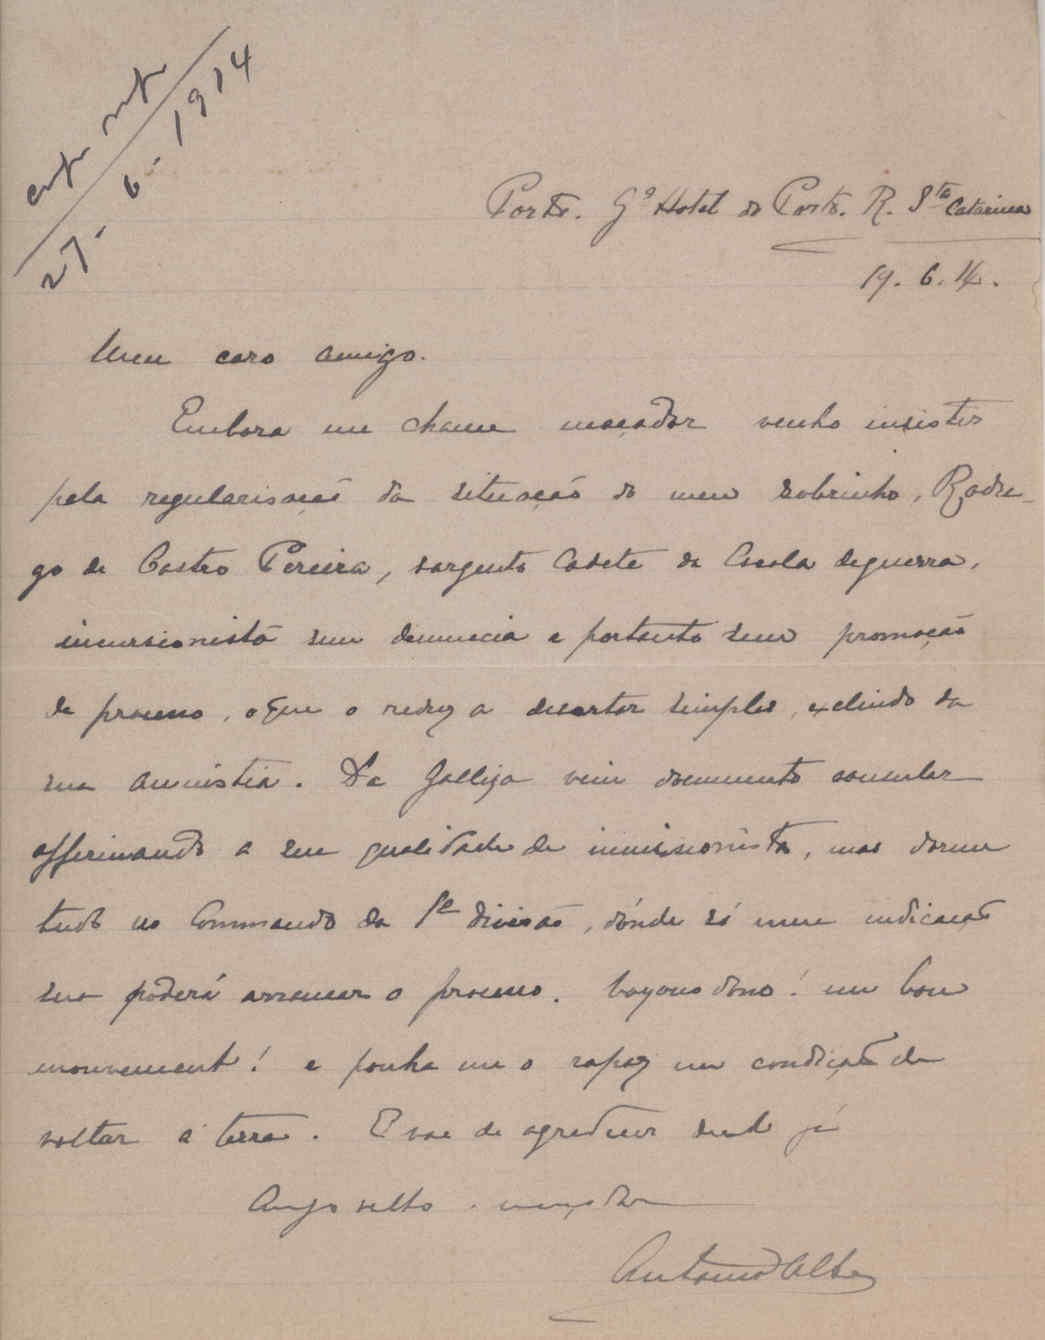 27. 6. 1914
Porto. Gde Hotel do Porto. R. Sta Catarina
19. 6. 14.
Meu caro amigo.
Embora me chame maçador venho insistir
pela regularisação da situação do meu sobrinho, Rodri-
go de Castro Pereira, sargento Cadete da Escola de guerra,
incursionista sem denuncia e portanto sem promoção
de processo, o que o reduz a desertor simples, excluindo da
sua amnistia. Da Galliza veiu documento consular
affirmando a sua qualidade de incursionista, mas dorme
tudo no Commando da 1ª divisão, dónde só uma indicação
sua poderá arrancar o processo. Voyons donc! un bon
mouvement! e ponha me o rapaz em condição de
voltar á terra. E vae de agradecer desde já
Amgo velho maçador
Antonio